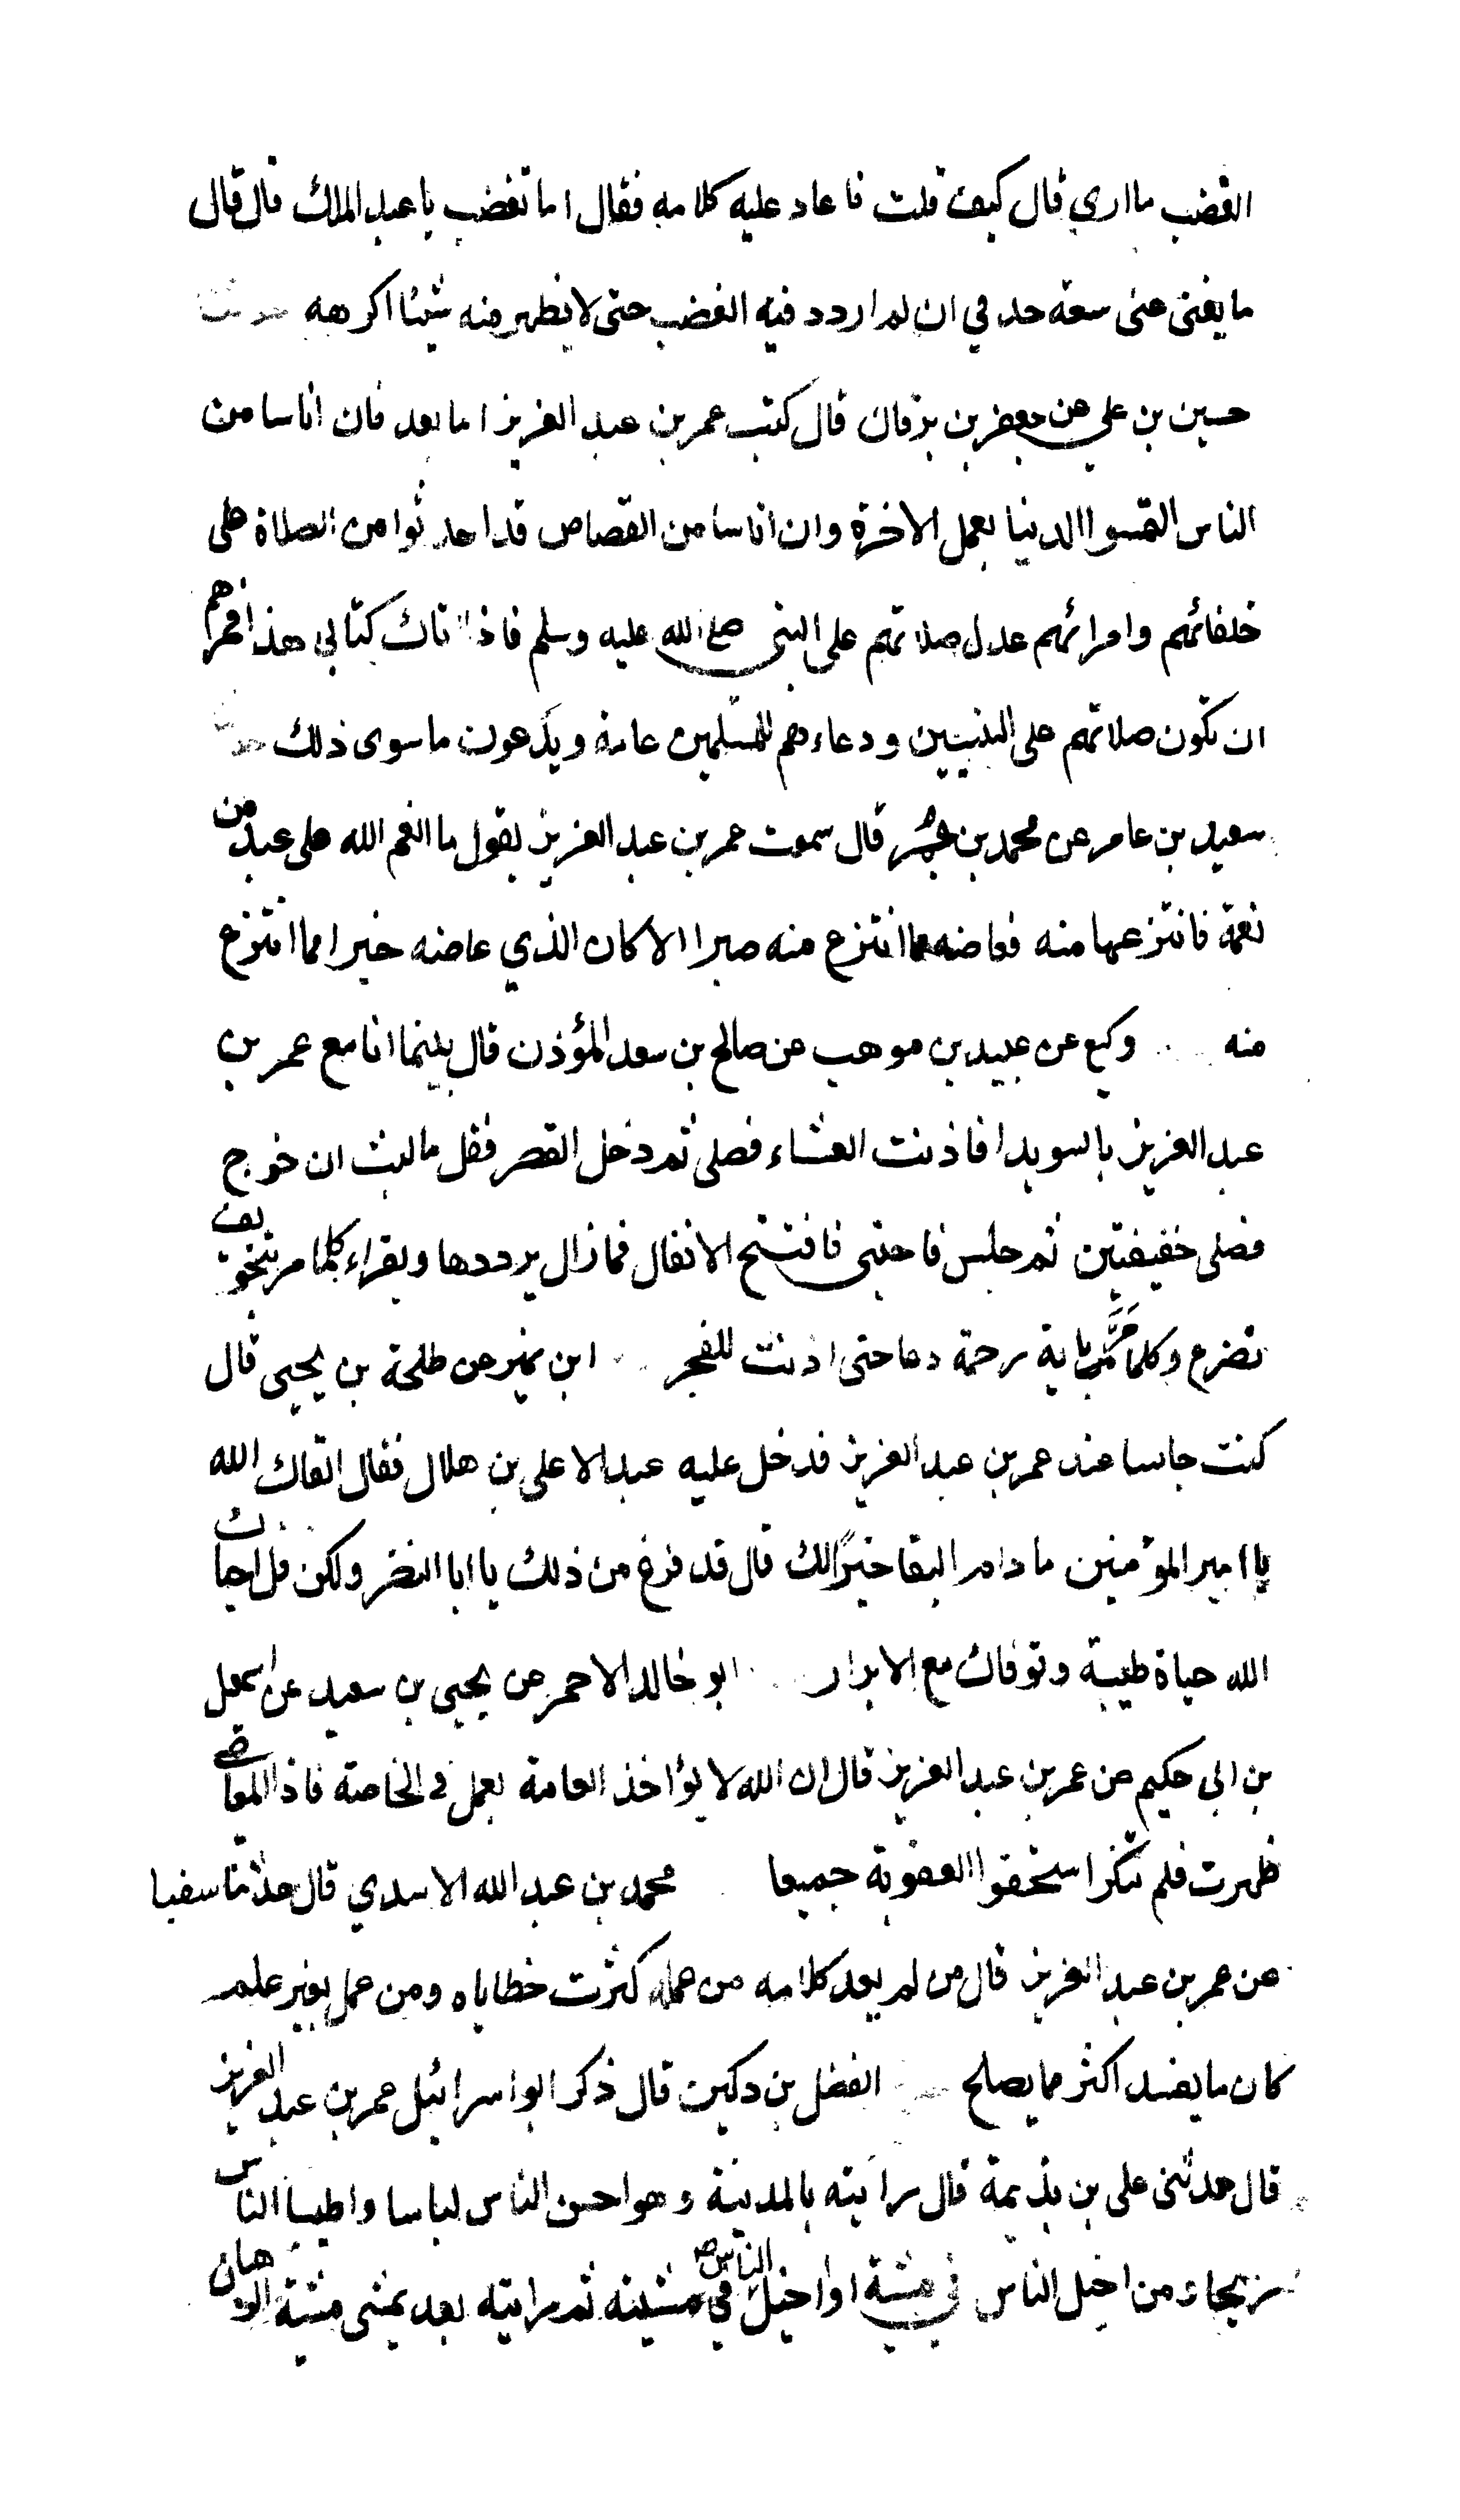 الغضب ما ارى قال كيف قلت فاعاد عليه كلامه فقال اما تغضب يا عبد الملك قال قال
ما يغنى عنى سعة جوفي ان لم اردد فيه الغضب حتى لا يظهر منه شيئا اكرهه حدثنا
حسين بن على عن جعفر بن برقان قال كتب عمر بن عبد العزيز اما بعد فان اناسا من
الناس التمسوا الدنيا بعمل الاخرة وان اناسا من القصاص قد احدثوا من الصلاة على
خلفائهم وامرائهم عدل صلاتهم على النبى صلى الله عليه وسلم فاذا اتاك كتابى هذا فمرهم
ان تكون صلاتهم على النبيين ودعاءهم للمسلمين عامة ويدعون ما سوى ذلك حدثنا
سعيد بن عامر عن محمد بن قال سمعت عمر بن عبد العزيز يقول ما انعم الله على عبد من
نعمة فانتزعها منه فعاضه مما انتزع منه صبرا الا كان الذي عاضه خيرا مما انتزع
منه وكيع عن عبيد بن موهب عن صالح بن سعد المؤذن قال بينما انا مع عمر بن
عبد العزيز بالسويدا فاذنت العشاء فصلى ثم دخل القصر فقل ما لبث ان خرج
فصلى خفيفتين ثم جلس فاحتبى فافتتح الانفال فما زال يرددها ويقراء كلما مر بتخويف
تضرع وكلما مر باية رحمة دعا حتى اذنت للفجر ابن نمير عن طلحة بن يحيى قال
كنت جاسا عند عمر بن عبد العزيز فدخل عليه عبد الاعلى بن هلال فقال ابقاك الله
يا امير المؤمنين ما دام البقا خيرًا لك قال قد فرغ من ذلك يا ابا النضر ولكن قل احياك
الله حياة طيبة وتوفاك مع الابرار ابو خالد الاحمر عن يحيى بن سعيد عن اسمعيل
بن ابى حكيم عن عمر بن عبد العزيز قال ان الله لا يؤاخذ العامة بعمل فى الخاصة فاذا المعاصى
ظهرت فلم تنكر استحقوا العقوبة جميعا محمد بن عبد الله الاسدي قال حدثنا سفيا
عن عمر بن عبد العزيز قال من لم يعد كلامه من عمله كثرت خطاياه ومن عمل بغير علم
كان ما يفسد اكثر مما يصلح الفضل بن دكين قال ذكر ابو اسرائيل عمر بن عبد العزيز
قال حدثنى على بن بذيمة قال رايته بالمدينة وهو احسن الناس لباسا واطيب الناس
ريحا ومن اخيل الناس في مشية او اخيل الناس في مشيته ثم رايته بعد يمشى مشية الرهبان